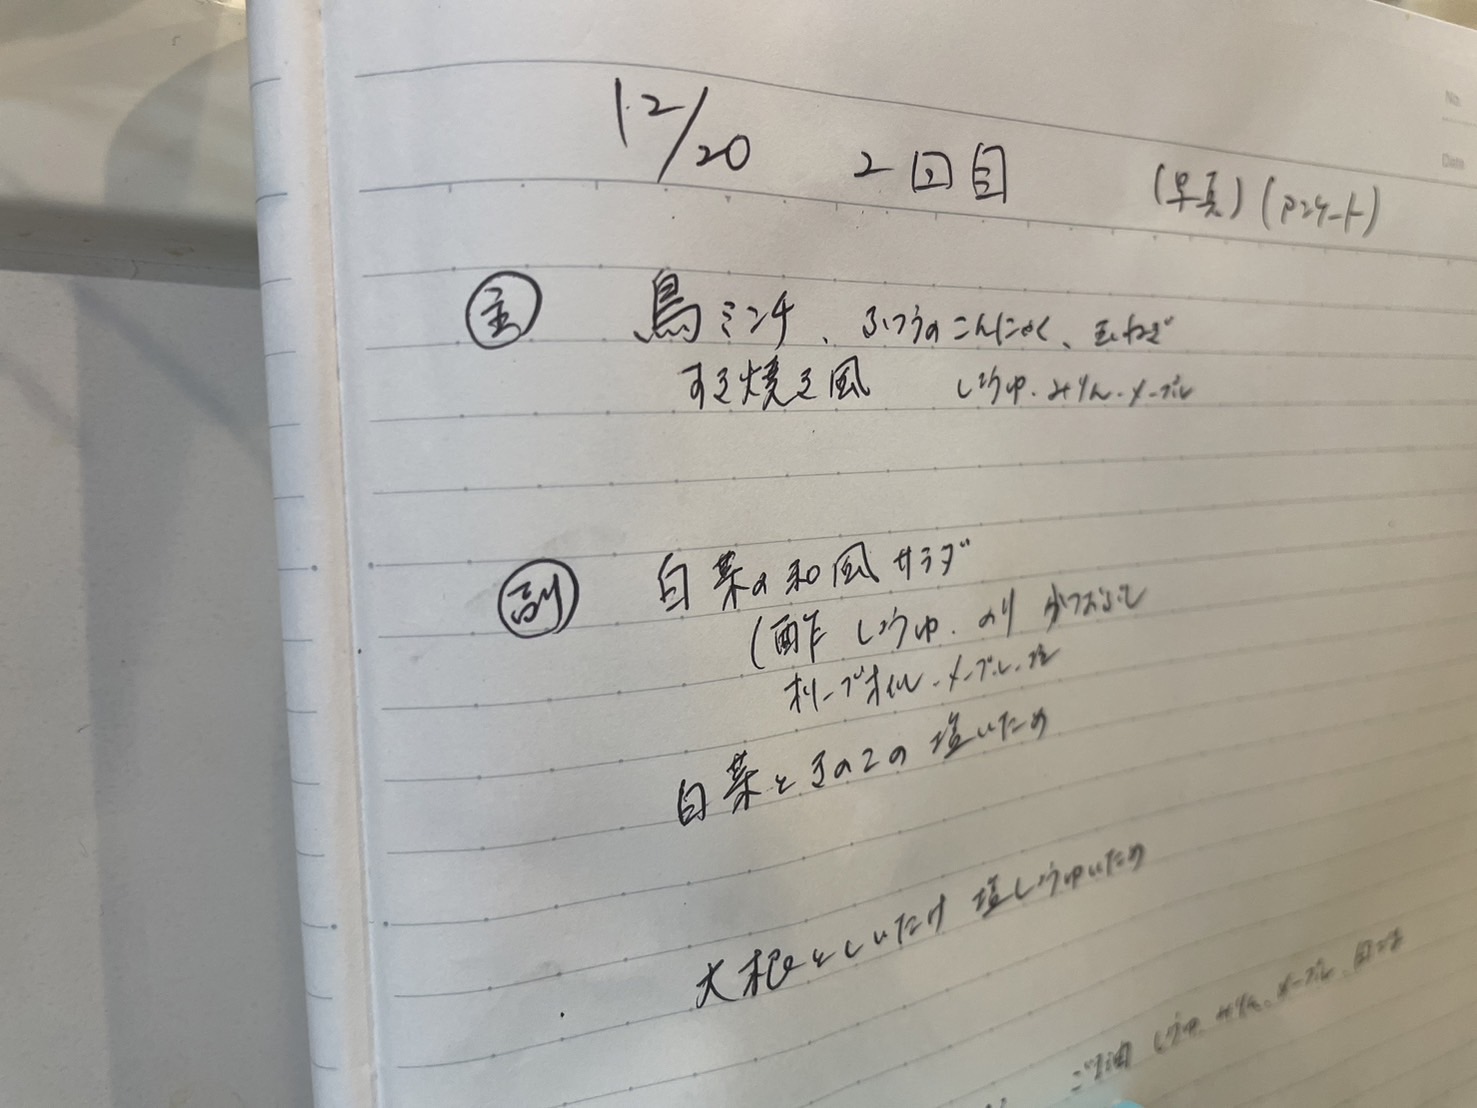 12/20 2回目 (写真)(アンケート)
主 鳥ミンチ、ふつうのこんにゃく、玉ねぎ
すき焼き風 しょうゆ・みりん・メープル
副 白菜の和風サラダ
(酢 しょうゆ・のり かつおぶし
オリーブオイル・メープル・塩
白菜ときのこの塩いため
大根としいたけ 塩しょうゆいため
ごま油 しょうゆ・みりん・メープル・白ごま